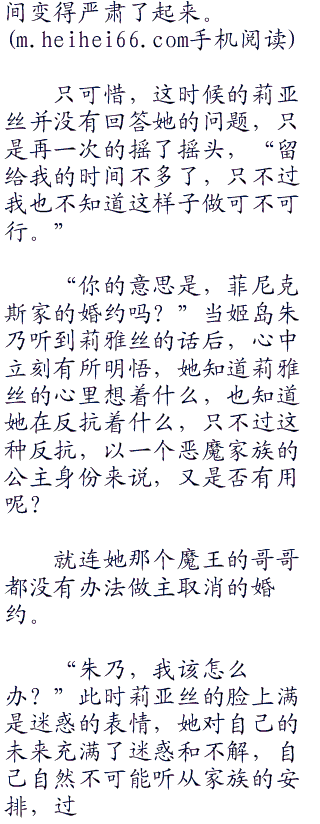 间变得严肃了起来。
(m.heihei66.com手机阅读)
只可惜，这时候的莉亚
丝并没有回答她的问题，只
是再一次的摇了摇头，“留
给我的时间不多了，只不过
我也不知道这样子做可不可
行。”
“你的意思是，菲尼克
斯家的婚约吗？”当姬岛朱
乃听到莉雅丝的话后，心中
立刻有所明悟，她知道莉雅
丝的心里想着什么，也知道
她在反抗着什么，只不过这
种反抗，以一个恶魔家族的
公主身份来说，又是否有用
呢？
就连她那个魔王的哥哥
都没有办法做主取消的婚
约。
“朱乃，我该怎么
办？”此时莉亚丝的脸上满
是迷惑的表情，她对自己的
未来充满了迷惑和不解，自
己自然不可能听从家族的安
排，过